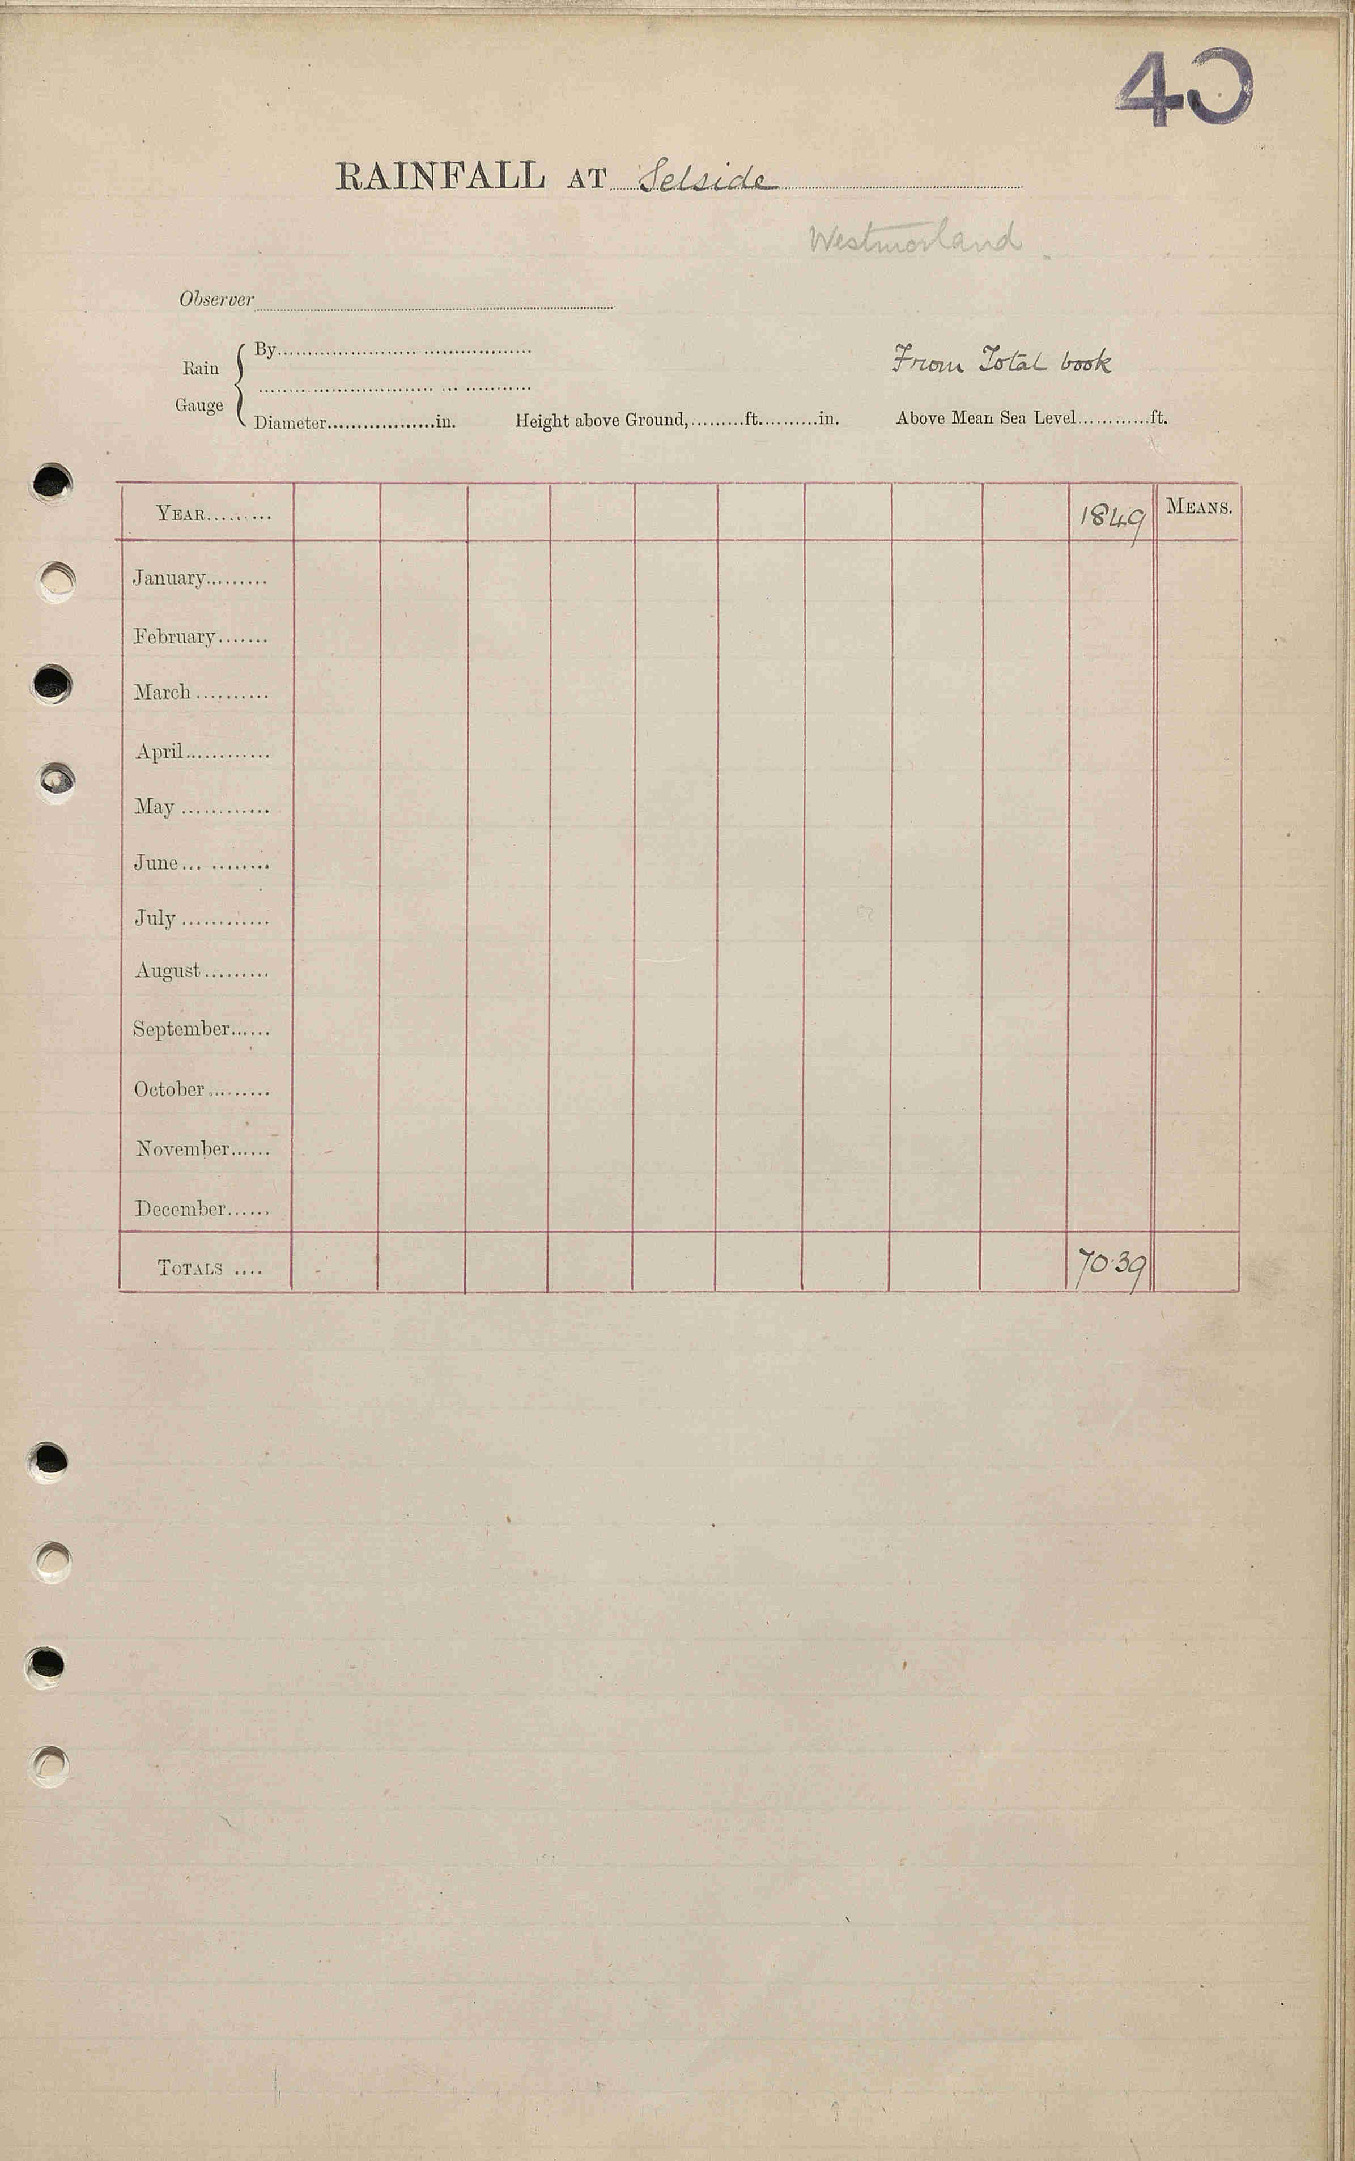 40
RAINFALL AT Selside
Westmorland
Observer
Rain Gauge
By
From Total book
Diameter in. Height above Ground, ft. in. Above Mean Sea Level ft.
YEAR 1849 MEANS.
January
February
March
April
May
June
July
August
September
October
November
December
TOTALS 70.39